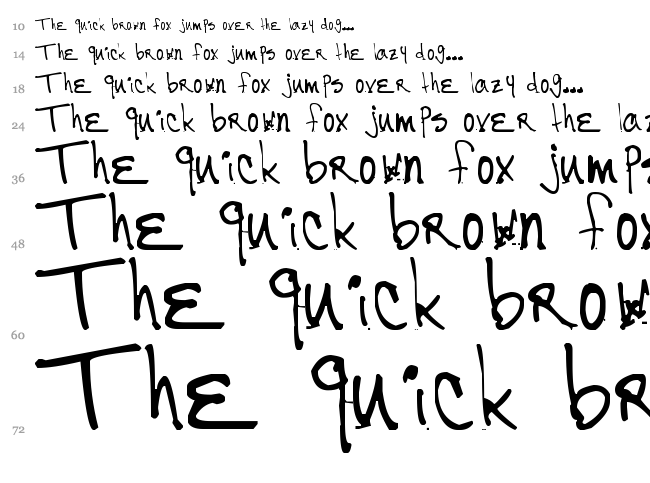 10 The quick brown fox jumps over the lazy dog...
14 The quick brown fox jumps over the lazy dog...
18 The quick brown fox jumps over the lazy dog...
24 The quick brown fox jumps over the laz
36 The quick brown fox jumps
48 The quick brown fox
60 The quick brow
72 The quick br